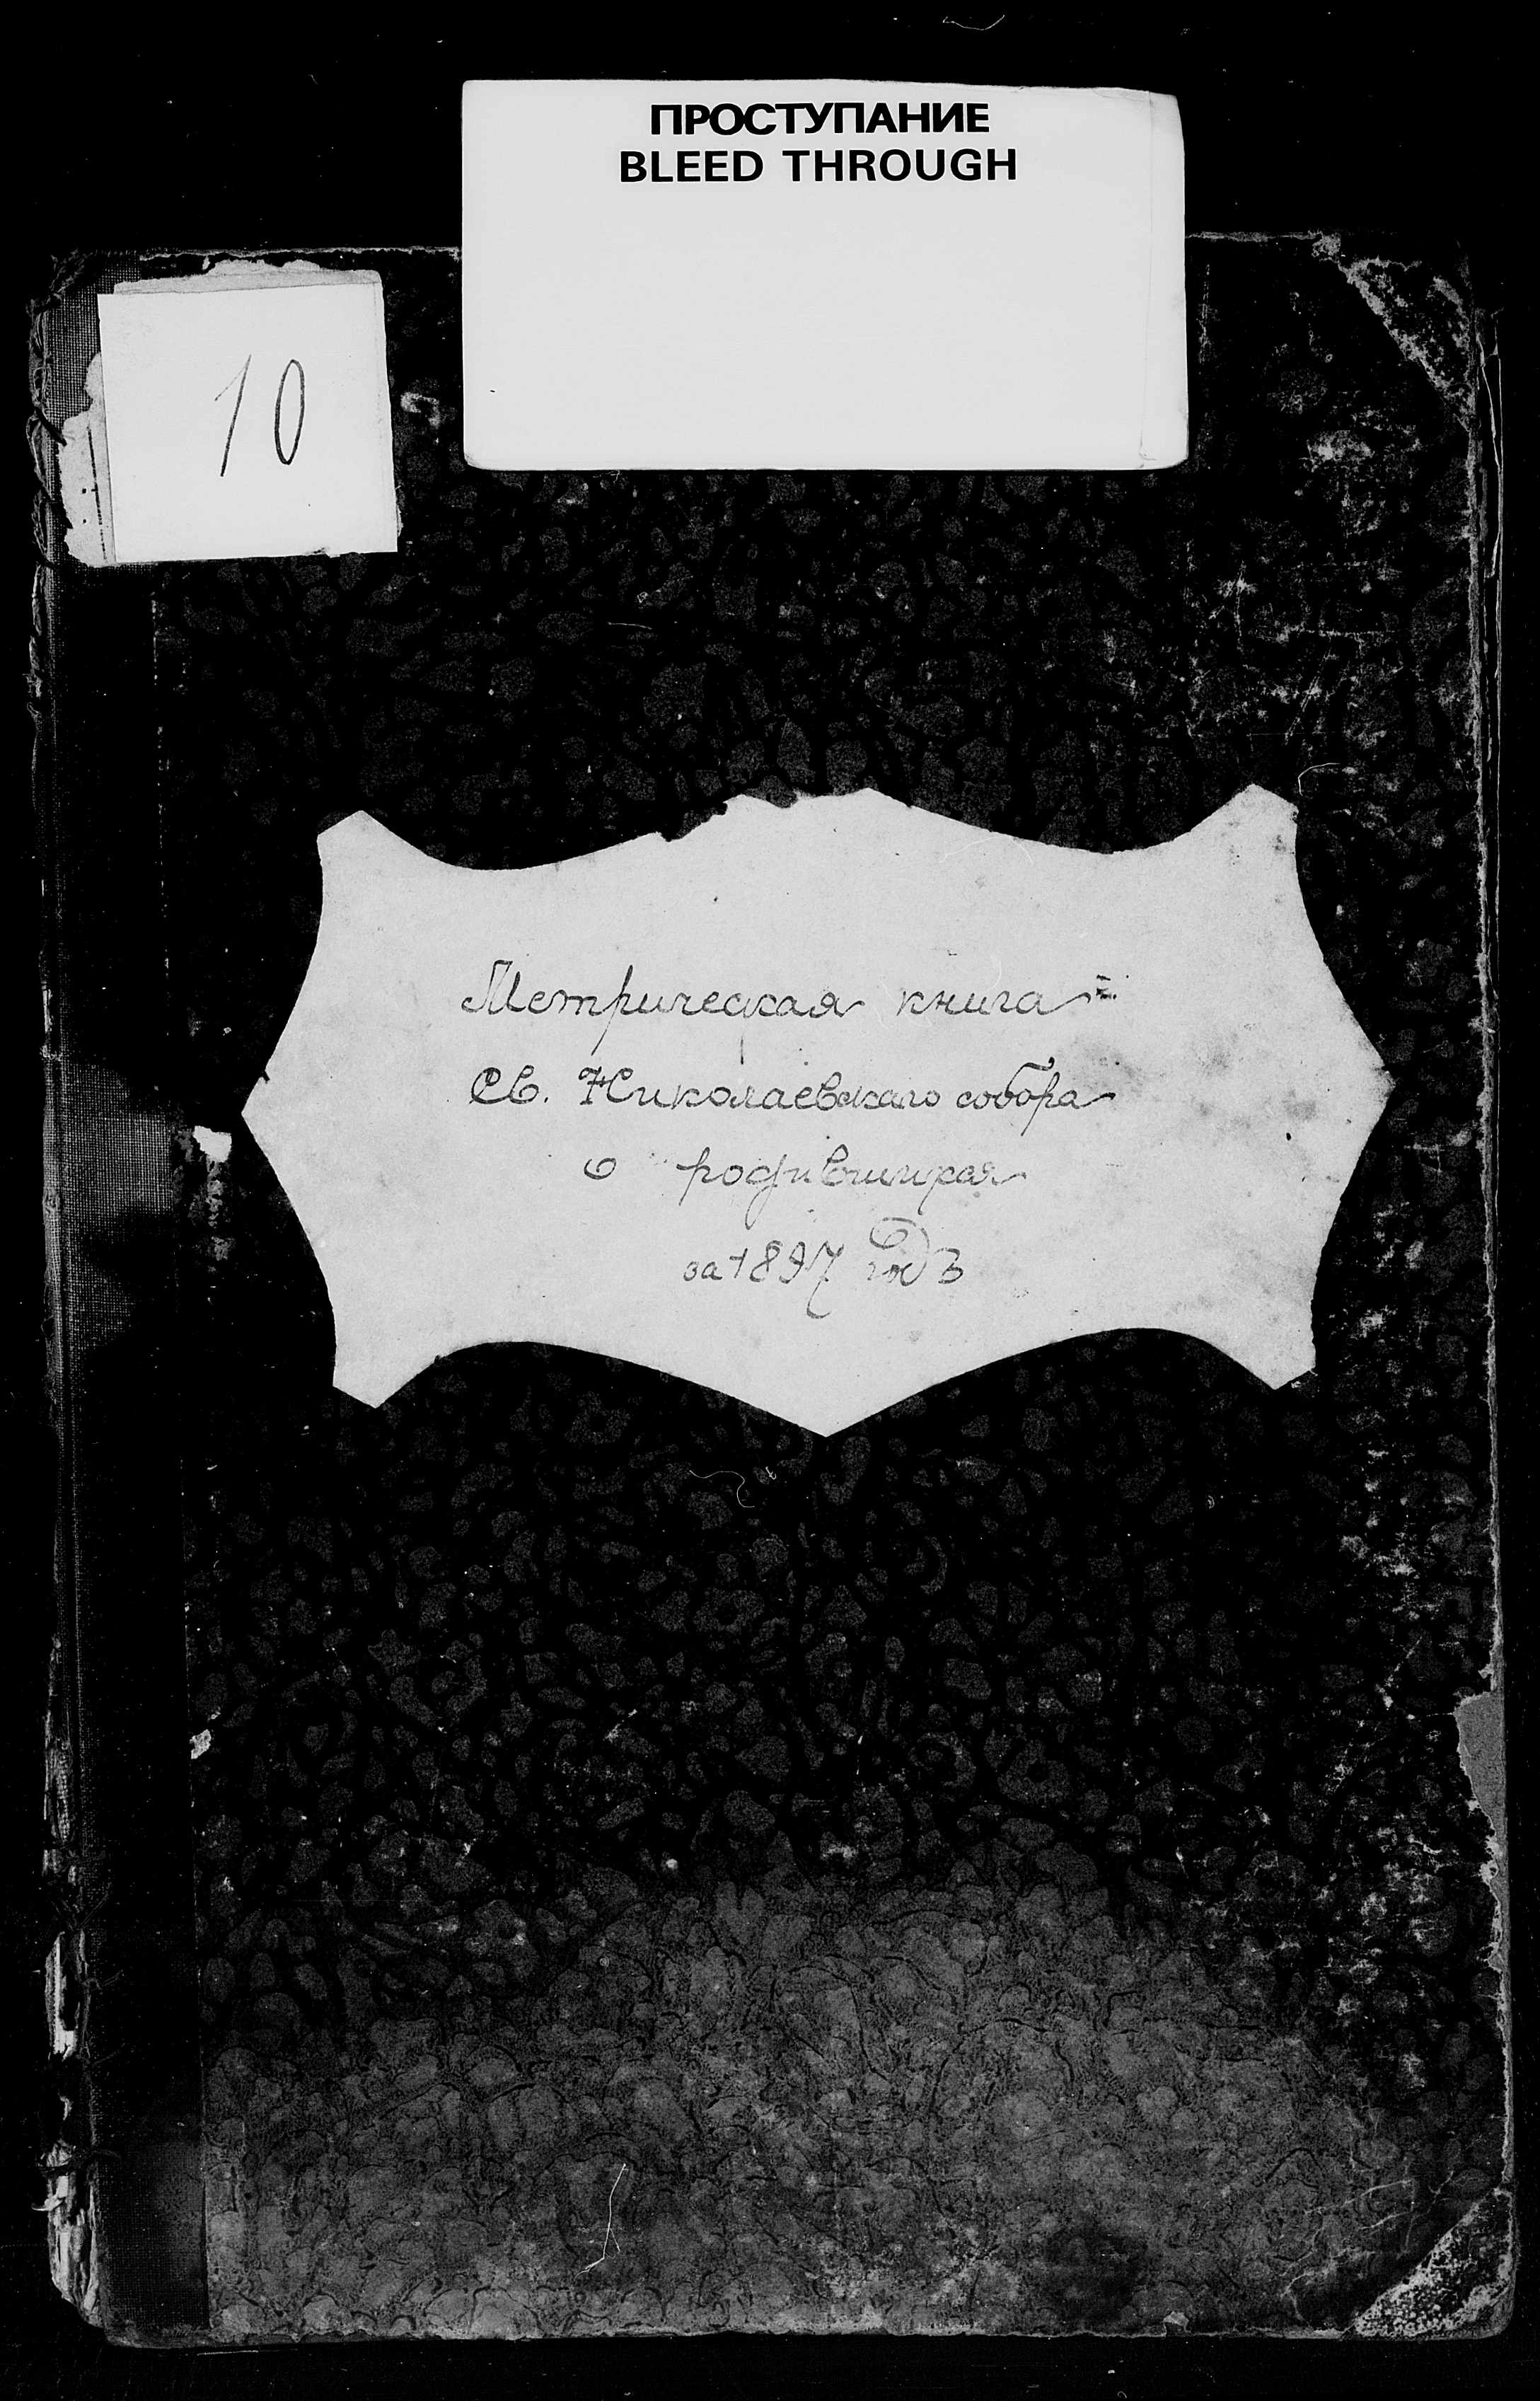 ПРОСТУПАНИЕ
BLEED THROUGH
10
Метрическая книга
Св. Николаевскаго собора
о родившихся
за 1897 годъ